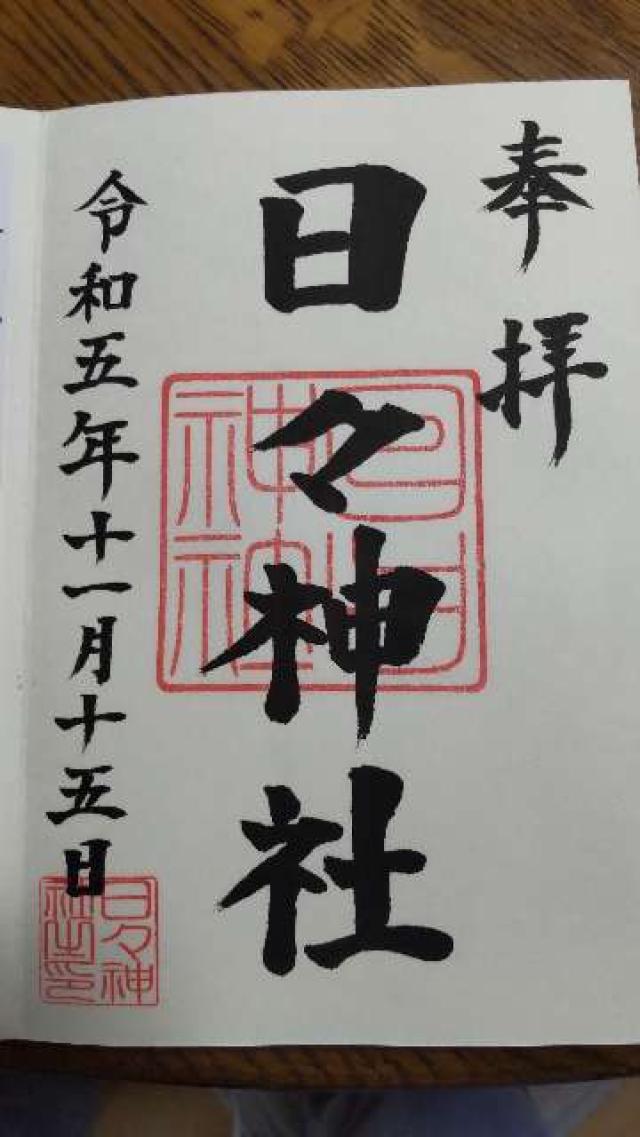 奉拝
日々神社
日日神社
令和五年十一月十五日
日々神社之印